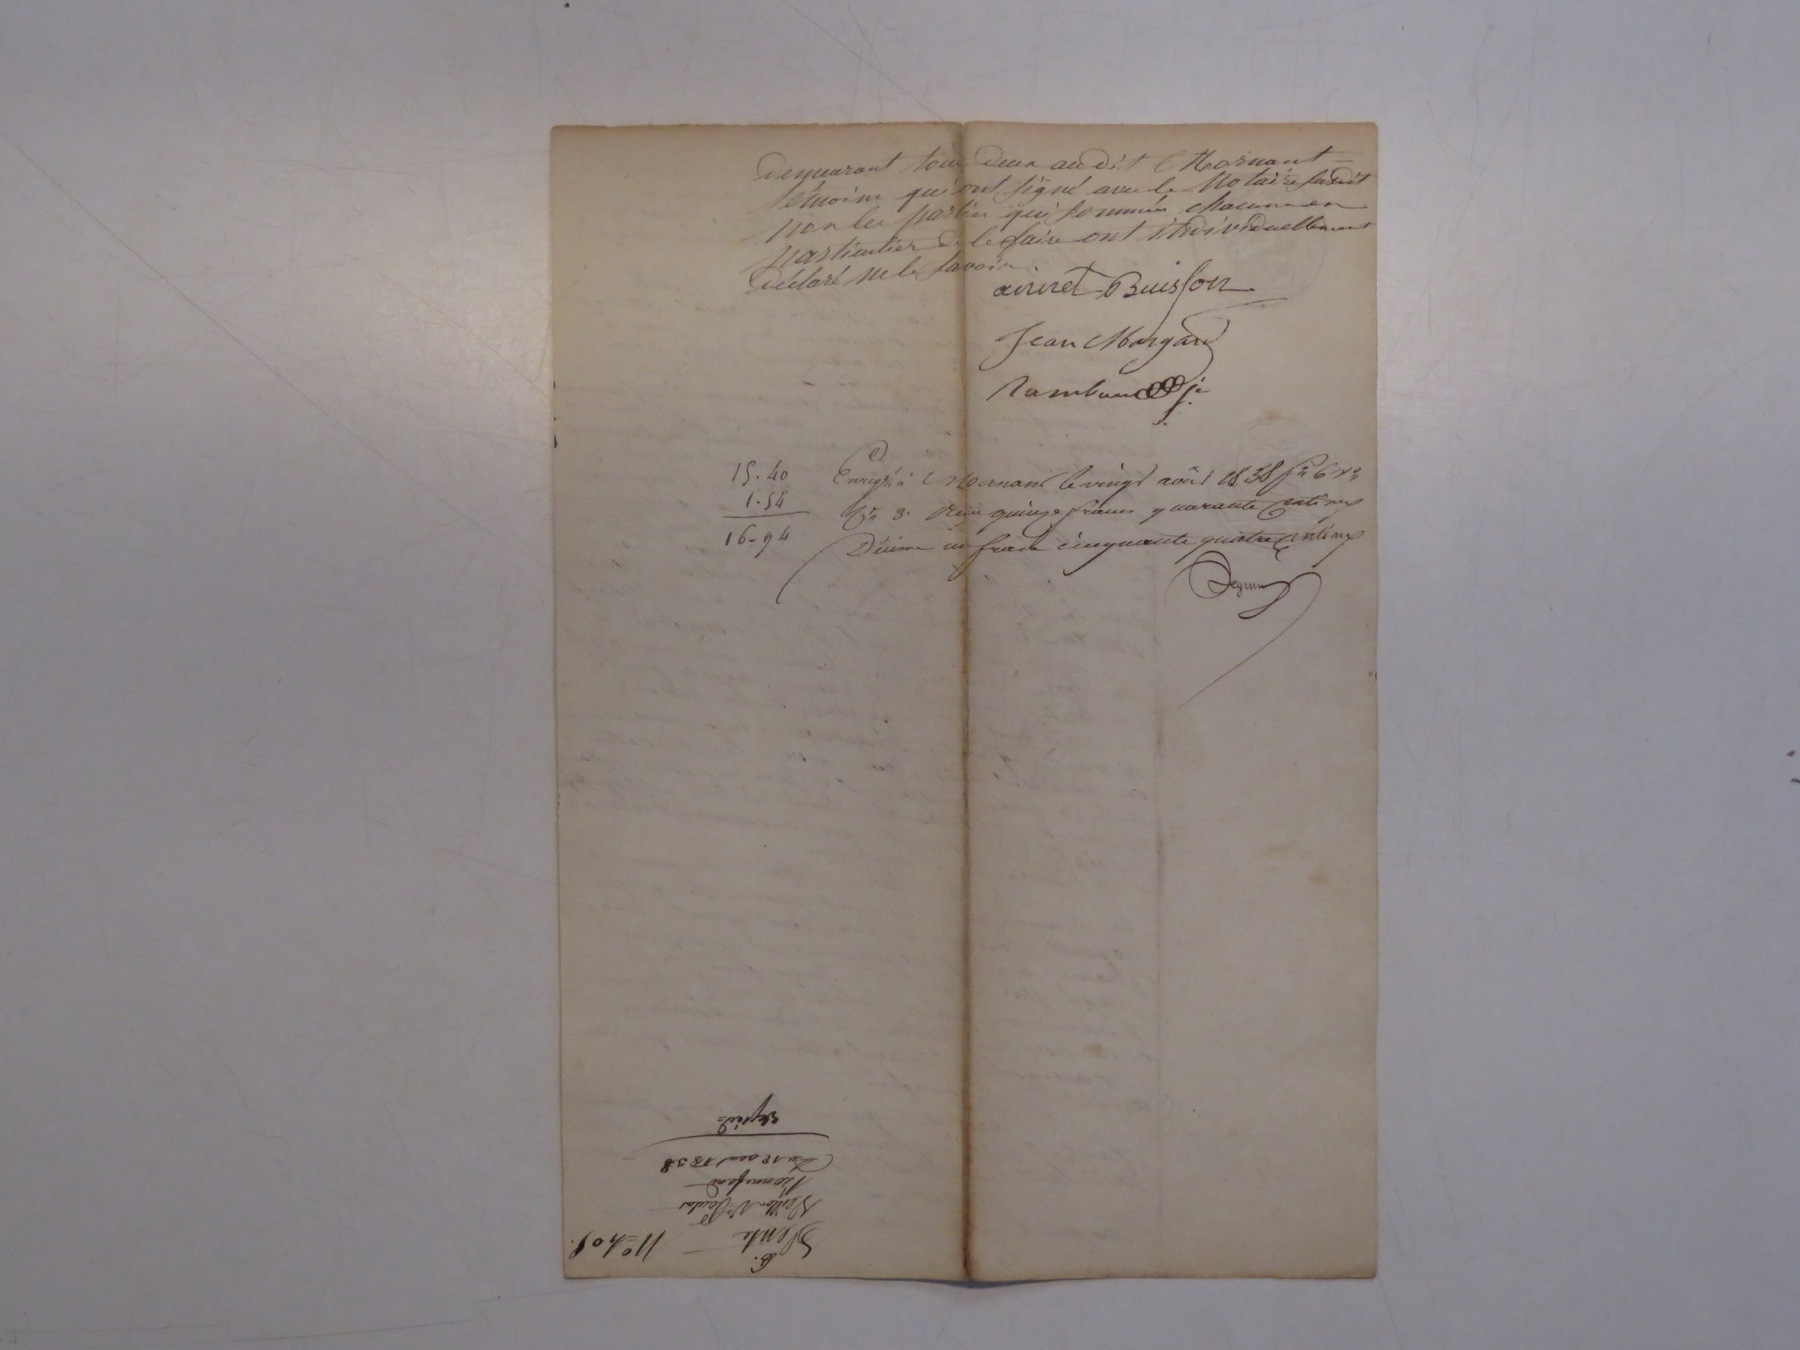 demeurant tous deux audit Mornant
témoins qui ont signé avec le Notaire susdit
non les parties qui sommées chacune en
particulier de le faire ont individuellement
déclaré ne le savoir
Buisson
Jean Margand
15.40
1.54
16-94
Enregé à Mornant le vingt août 1838 fo 6 ro
Ce 8. Reçu quinze francs quarante centimes
Décime un franc cinquante quatre centimes
No 409.
Vente
Du 12 août 1838
Expéd